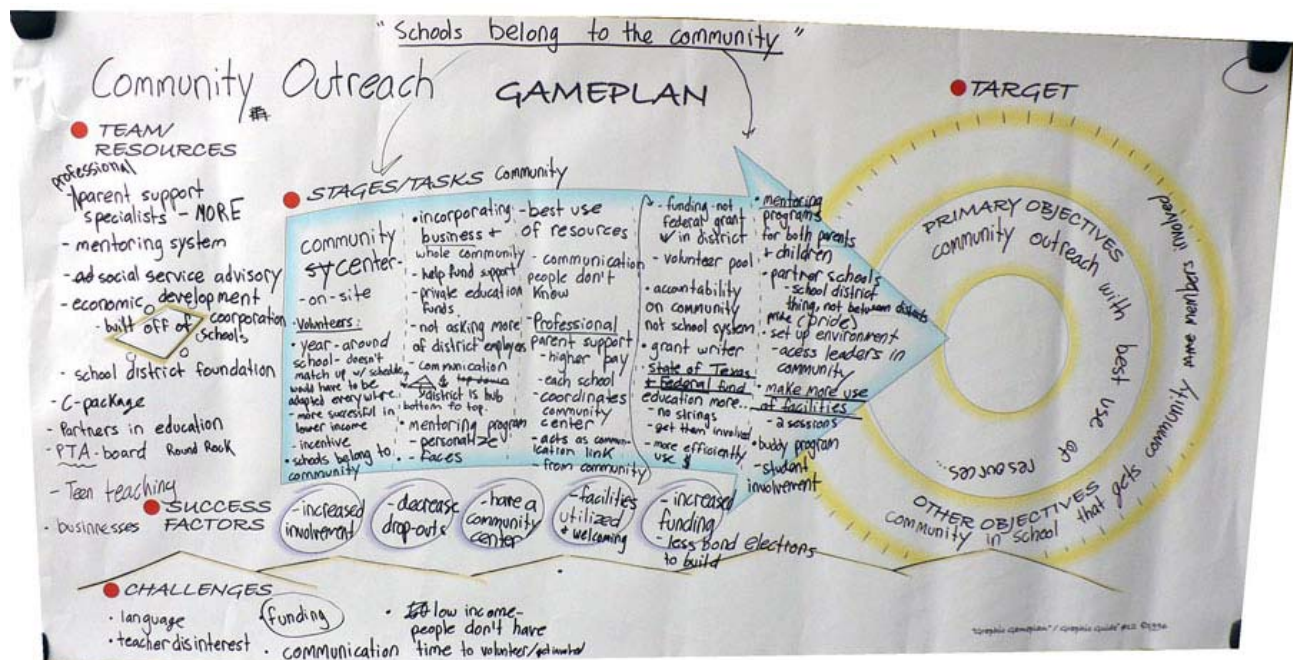 "Schools belong to the community"
Community Outreach
GAMEPLAN
TEAM/
RESOURCES
professional
parent support
specialists - MORE
- mentoring system
- social service advisory
- economic development
- built off of coorporation
schools
- school district foundation
- C-package
- Partners in education
- PTA-board Round Rock
- Teen teaching
- businnesses
STAGES/TASKS Community
community
center-
-on-site
- Volunteers:
• year-around
school-doesn't
match up w/
would have to be
adapted everywhere.
- more sucessful in
lower income
- incentive
• schools belong to
community
• incorporating
business +
whole community
- help fund support
- private education
funds
- not asking more
of district employees
- communication
district is hub
bottom to top.
• mentoring program
- personalize
- faces
- best use
of resources
- communication
people don't
know
- Professional
parent support
- higher pay
- each school
- coordinates
community
center
- acts as commun-
ication link
- from community
- funding-not
federal grant
in district
- volunteer pool
• accountability
on community
not school system
• grant writer
- State of Texas
+ Federal fund
education more...
- no strings
- get them involved
- more efficiently
use $
• mentoring
programs
for both parents
+ children
• partner schools
- school district
thing, not between districts
(pride)
• set up environment
- acess leaders in
community
• make more use
of facilities
- 2 sessions
• buddy program
- student
involvement
TARGET
PRIMARY OBJECTIVES
community outreach with best use of resources...
OTHER OBJECTIVES
community in school that gets community/ members involved
SUCCESS
FACTORS
-increased
involvement
-decrease
drop-outs
-have a
community
center
-facilities
utilized
+ welcoming
-increased
funding
-less bond elections
to build
CHALLENGES
• language
• teacher disinterest
funding
• communication
• low income-
people don't have
time to volunteer/get involved
"Graphic Gameplan"/ Graphic Guide #12 ©1996